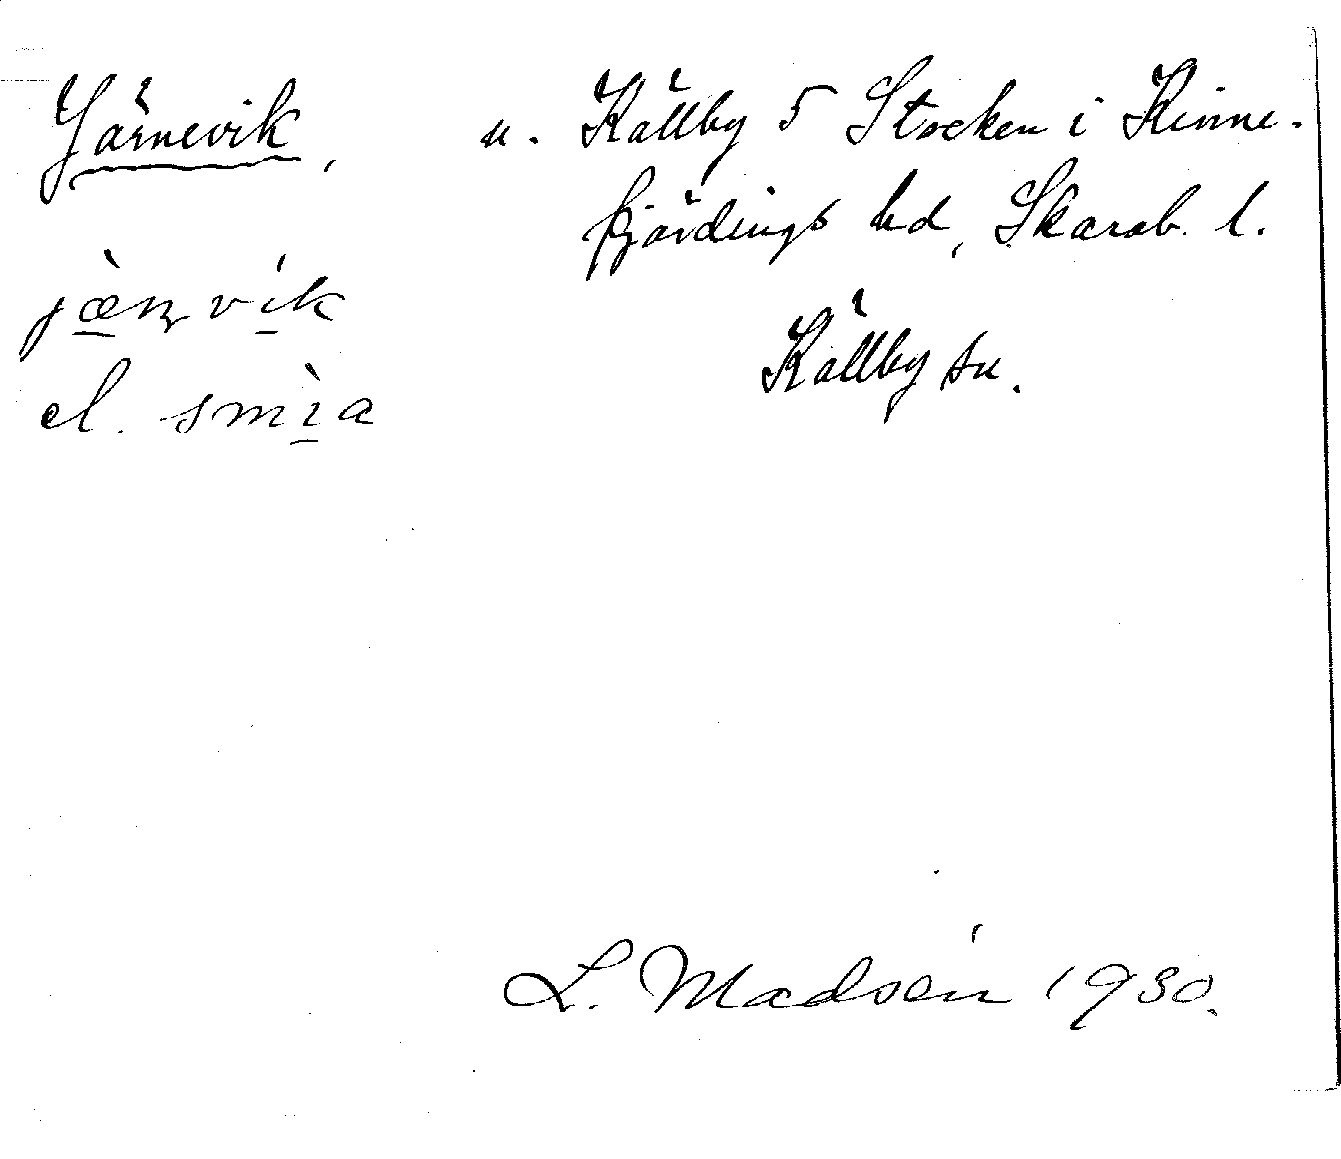 Järnevik,
jæ̀ɳvík
el. smı̀a
u. Källby 5 Stocken i Kinne-
fjärdings hd, Skarab. l.
Källby sn.
L. Madsén 1930.